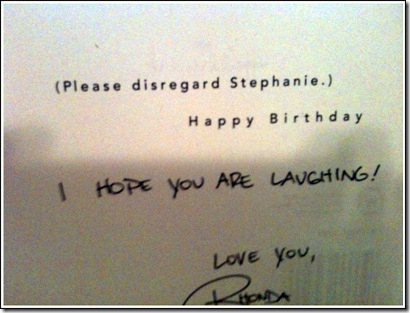 (Please disregard Stephanie.)
Happy Birthday
I HOPE YOU ARE LAUGHING!
LOVE YOU,
RHONDA